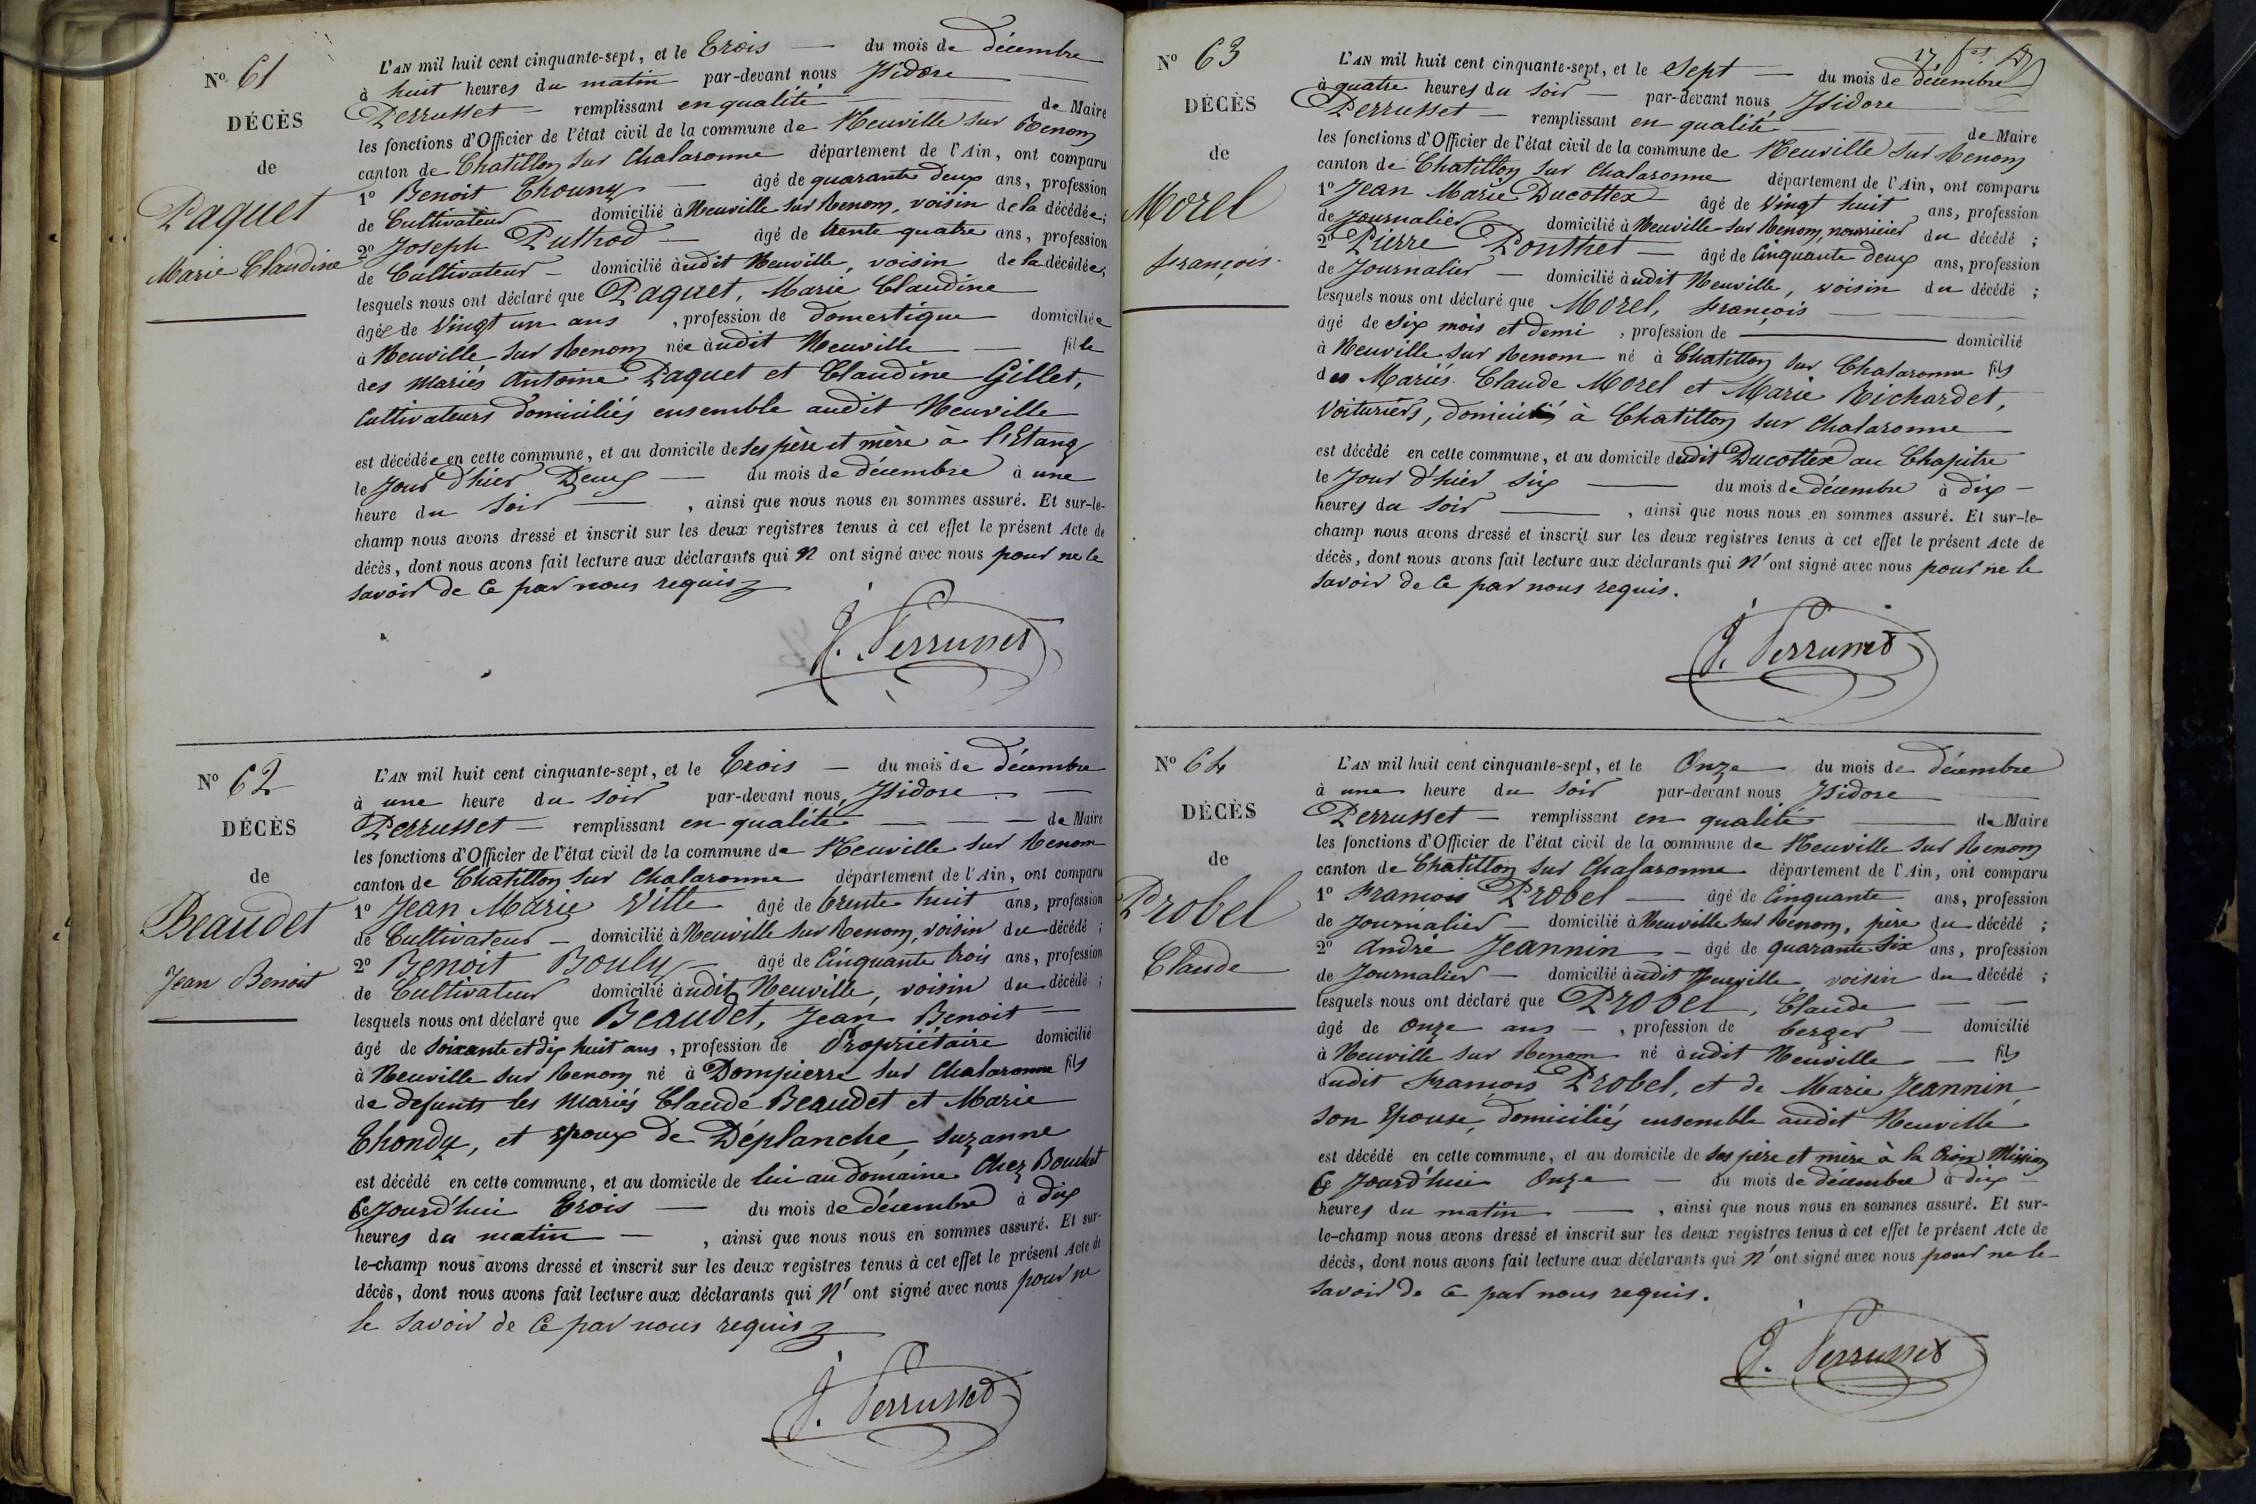 N° 61
DÉCÈS
de
Paquet
Marie Claudine
L'AN mil huit cent cinquante-sept, et le Trois — du mois de décembre
à huit heures du matin par-devant nous Isidore
Perrusset — remplissant en qualité — de Maire
les fonctions d'Officier de l'état civil de la commune de Neuville sur Renom
canton de Chatillon sur Chalaronne département de l'Ain, ont comparu
1° Benoit Thouny — âgé de quarante deux ans, profession
de Cultivateur domicilié à Neuville sur Renom, voisin de la décédée ;
2° Joseph Puthod — âgé de trente quatre ans, profession
de Cultivateur — domicilié audit Neuville, voisin de la décédée ;
lesquels nous ont déclaré que Paquet, Marie Claudine
âgée de Vingt un ans , profession de domestique domiciliée
à Neuville sur Renom née audit Neuville — fille
des mariés Antoine Paquet et Claudine Gillet,
Cultivateurs domiciliés ensemble audit Neuville
est décédée en cette commune, et au domicile de ses père et mère à l'Etang
le Jour d'hier Deux — du mois de décembre à une
heure du soir — , ainsi que nous nous en sommes assuré. Et sur-le-
champ nous avons dressé et inscrit sur les deux registres tenus à cet effet le présent Acte de
décès, dont nous avons fait lecture aux déclarants qui N ont signé avec nous pour ne le
savoir de ce par nous requis
J. Perrusset
N° 62
DÉCÈS
de
Beaudet
Jean Benoit
L'AN mil huit cent cinquante-sept, et le Trois — du mois de décembre
à une heure du soir par-devant nous, Isidore —
Perrusset — remplissant en qualité — — — de Maire
les fonctions d'Officier de l'état civil de la commune de Neuville sur Renom
canton de Chatillon sur Chalaronne département de l'Ain, ont comparu
1° Jean Marie Ville âgé de trente huit ans, profession
de Cultivateur — domicilié à Neuville sur Renom, voisin du décédé ;
2° Benoit Bouly — âgé de Cinquante trois ans, profession
de Cultivateur domicilié audit Neuville, voisin du décédé ;
lesquels nous ont déclaré que Beaudet, Jean Benoit —
âgé de soixante et dix huit ans , profession de Propriétaire domicilié
à Neuville sur Renom né à Dompierre sur Chalaronne fils
de defunts les mariés Claude Beaudet et Marie
Thondy, et epoux de Déplanche, Suzanne
est décédé en cette commune, et au domicile de lui au domaine Chez Bouchet
Cejourd'hui Trois — du mois de décembre à dix
heures du matin — , ainsi que nous nous en sommes assuré. Et sur-
le-champ nous avons dressé et inscrit sur les deux registres tenus à cet effet le présent Acte de
décès, dont nous avons fait lecture aux déclarants qui N' ont signé avec nous pour ne
le savoir de ce par nous requis
J. Perrusset
N° 63
DÉCÈS
de
Morel
François.
L'AN mil huit cent cinquante-sept, et le Sept — du mois de décembre
à quatre heures du soir — par-devant nous, Isidore
Perrusset — remplissant en qualité — de Maire
les fonctions d'Officier de l'état civil de la commune de Neuville sur Renom
canton de Chatillon sur Chalaronne département de l'Ain, ont comparu
1° Jean Marie Ducottex âgé de Vingt huit ans, profession
de Journalier domicilié à Neuville-sur Renom, nourricier du décédé ;
2° Pierre Ponthet — âgé de Cinquante deux ans, profession
de Journalier — domicilié audit Neuville, voisin du décédé ;
lesquels nous ont déclaré que Morel, François —
âgé de six mois et demi , profession de — domicilié
à Neuville sur Renom né à Chatillon sur Chalaronne fils
des Mariés Claude Morel et Marie Richardet,
Voituriers, domiciliés à Chatillon sur Chalaronne
est décédé en cette commune, et au domicile dudit Ducottex au Chapitre
le Jour d'hier six — du mois de décembre à dix —
heures du soir — , ainsi que nous nous en sommes assuré. Et sur-le-
champ nous avons dressé et inscrit sur les deux registres tenus à cet effet le présent Acte de
décès, dont nous avons fait lecture aux déclarants qui N' ont signé avec nous pour ne le
savoir de ce par nous requis.
J. Perrusset
N° 64
DÉCÈS
de
Probel
Claude
L'AN mil huit cent cinquante-sept, et le Onze du mois de décembre
à une heure du soir par-devant nous Isidore
Perrusset — remplissant en qualité — de Maire
les fonctions d'Officier de l'état civil de la commune de Neuville sur Renom
canton de Chatillon sur Chalaronne département de l'Ain, ont comparu
1° François Probel — âgé de Cinquante ans, profession
de Journalier — domicilié à Neuville sur Renom, père du décédé ;
2° André Jeannin — âgé de quarante six ans, profession
de Journalier — domicilié audit Neuville, voisin du décédé ;
lesquels nous ont déclaré que Probel, Claude — —
âgé de onze ans — , profession de berger — domicilié
à Neuville sur Renom né audit Neuville — fils
dudit François Probel, et de Marie Jeannin,
son Epouse, domiciliés ensemble audit Neuville
est décédé en cette commune, et au domicile de ses père et mère à la Croix Mission
Ce Jourd'hui Onze — du mois de décembre à dix
heures du matin — , ainsi que nous nous en sommes assuré. Et sur-
le-champ nous avons dressé et inscrit sur les deux registres tenus à cet effet le présent Acte de
décès, dont nous avons fait lecture aux déclarants qui N' ont signé avec nous pour ne le
savoir de ce par nous requis.
J. Perrusset